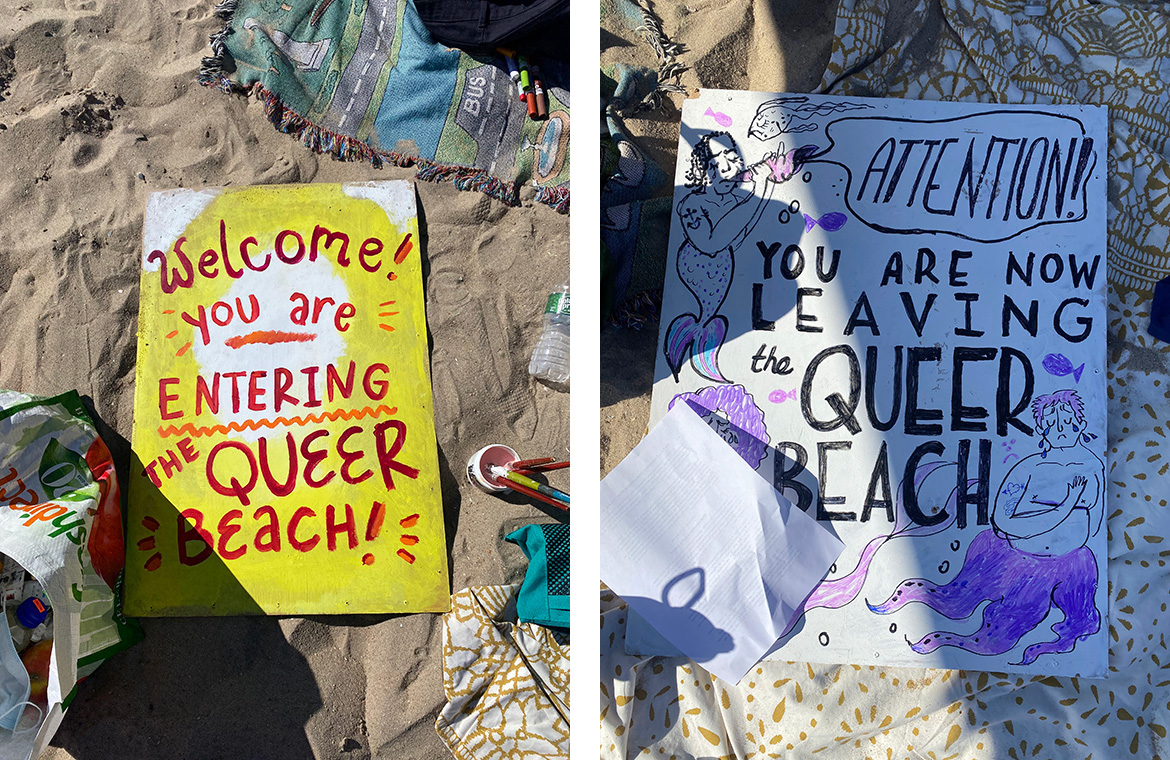 BUS
Welcome!
you are
ENTERING
THE QUEER
BEACH!
ATTENTION!
YOU ARE NOW
LEAVING
the QUEER
BEACH